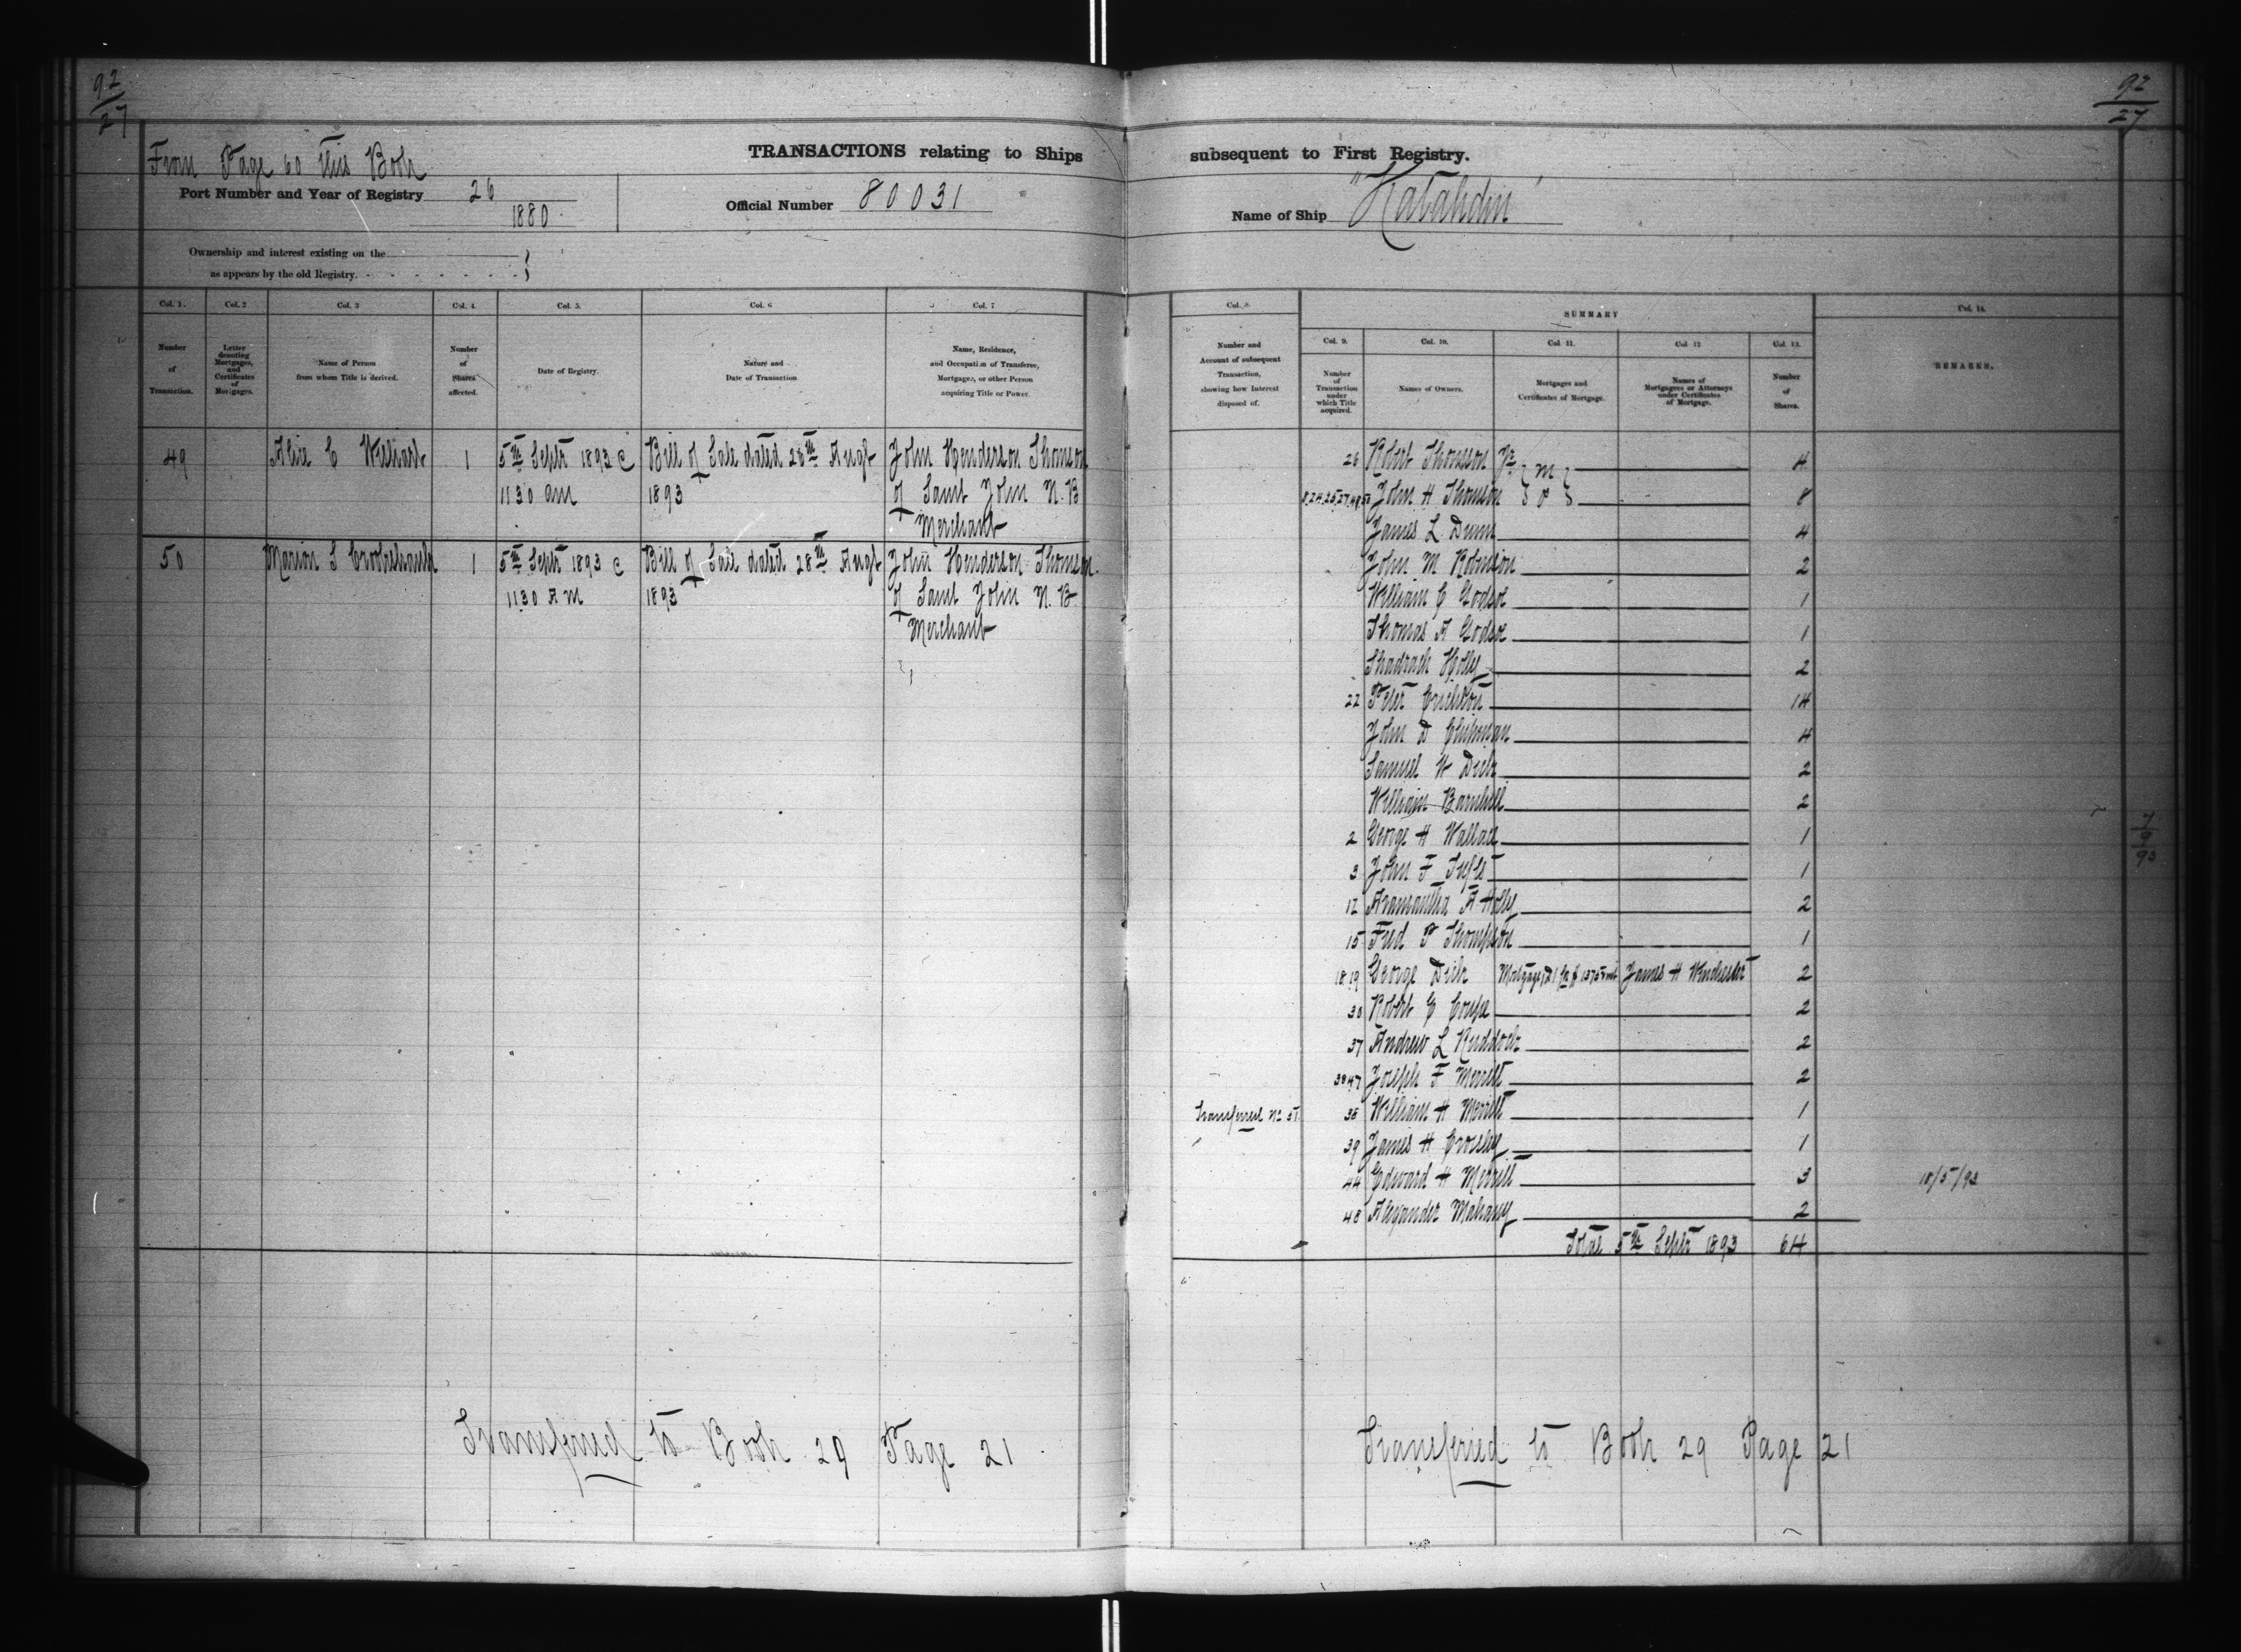 92
27
92
27
From Page 60 this Book
TRANSACTIONS relating to Ships subsequent to First Registry.
Port Number and Year of Registry 26
1880
Official Number 80031
Name of Ship "Katahdin"
Ownership and interest existing on the
as appears by the old Registry.
Col. 1.
Col. 2
Col. 3
Col. 4.
Col. 5.
Col. 6
Col. 7
Number
of
Transaction.
Letter
denoting
Mortgages,
and
Certificates
of
Mortgages.
Name of Person
from whom Title is derived.
Number
of
Shares
affected.
Date of Registry.
Nature and
Date of Transaction
Name, Residence,
and Occupation of Transferee,
Mortgagee, or other Person
acquiring Title or Power.
49 Alice C 1 5th Septr 1893 @ Bill of Sale dated 28th Augt John Henderson Thomson
11 30 am 1893 of Saint John N.B
Merchant
50 Marion S Crookshank 1 5th Septr 1893 @ Bill of Sale dated 28th Augt John Henderson Thomson
11 30 AM 1893 of Saint John N.B
Merchant
Transferred to Book 29 Page 21
Col. 8.
SUMMARY
Col. 14.
Number and
Account of subsequent
Transaction,
showing how Interest
disposed of.
Col. 9.
Col. 10.
Col. 11.
Col. 12
Col. 13.
Number
of
Transaction
under
which Title
acquired.
Names of Owners.
Mortgages and
Certificates of Mortgage.
Names of
Mortgagees or Attorneys
under Certificates
of Mortgage.
Number
of
Shares.
REMARKS.
26 Robert Thomson 4
John H Thomson 8
James L Dunn 4
John M Robinson 2
William C Godsoe 1
Thomas A Godsoe 1
Shadrach Holly 2
22 Peter Crichton 14
John D Chipman 4
Samuel W Dick 2
William Barnhill 2
2 George H Wallace 1
3 John F Tufts 1
12 Aramantha A Holly 2
15 Fred P Thompson 1
18 19 George Dick James H Winchester 2
30 Robert C Coupe 2
37 Andrew L Ruddock 2
38 47 Joseph F Merritt 2
Transferred No 51 38 William H Merritt 1
39 James H Crosley 1
44 Edward H Merrill 3 18/5/93
48 Alexander Mahany 2
Total 5th Septr 1893 64
7
9
93
Transferred to Book 29 Page 21